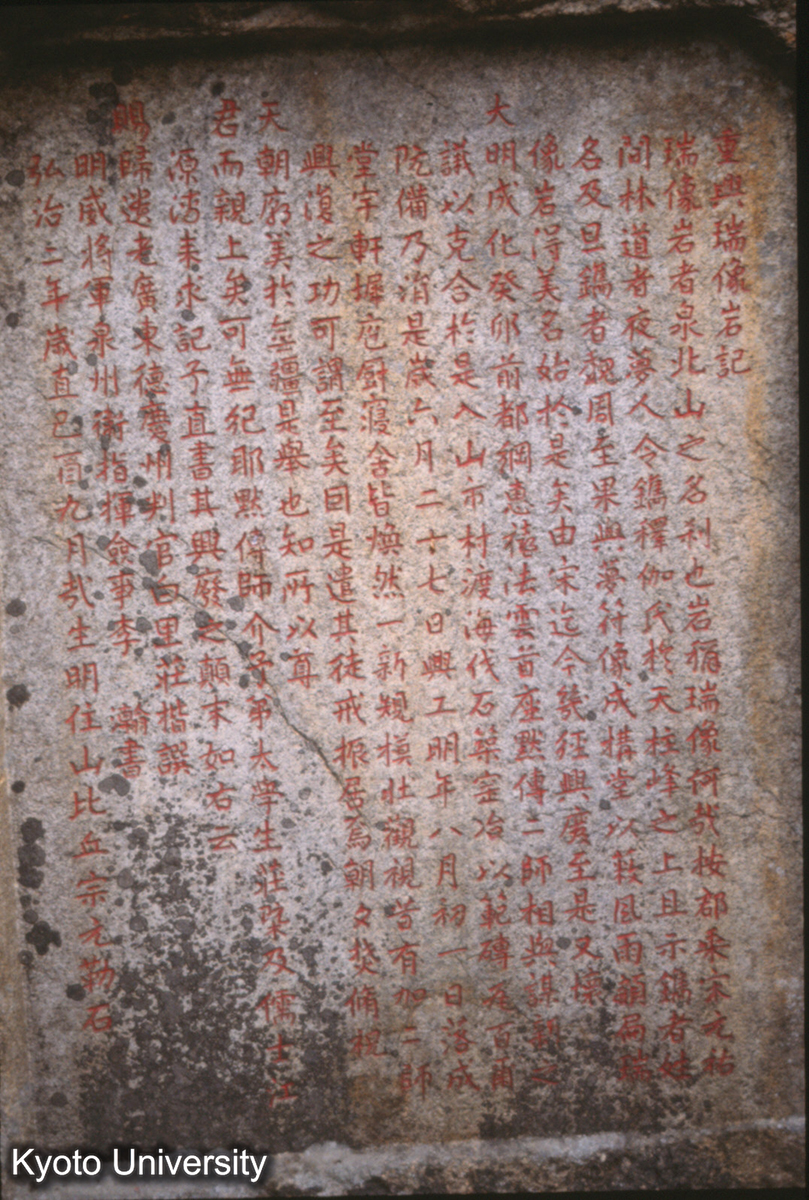 重興瑞像岩記
瑞像岩者泉北山之名刹也岩獨瑞像何哉按郡乗宋元祐
間林道者夜夢人令鐫釋伽氏於天柱峰之上且示鐫者姓
名及旦鐫者魏周至果與夢符像成構堂以蔽風雨額扁瑞
像岩得美名始於是矣由宋迄今幾經興廢至是又壞
大明成化癸卯前都綱惠禧法雲首座默傳二師相與謀新之
議以克合於是入山市材渡海伐石築窑冶以範磚瓦百用
院備乃涓是歲六月二十七日興工明年八月初一日落成
堂宇軒墀庖厨寢舍皆煥然一新規模壯觀視昔有加二師
興復之功可謂至矣因是遣其徒戒振居焉朝夕焚脩祝
天朝廓美於無疆是舉也知所以尊
君而親上矣可無紀耶默傳師介予弟太學生莊槩及儒士江
源清来求記予直書其興廢之顛末如右云
賜歸逸老廣東德慶州判官白里莊楷譔
明威將軍泉州衛指揮僉事李 瀚書
弘治二年歲直己酉九月哉生明住山比丘宗元勒石
Kyoto University